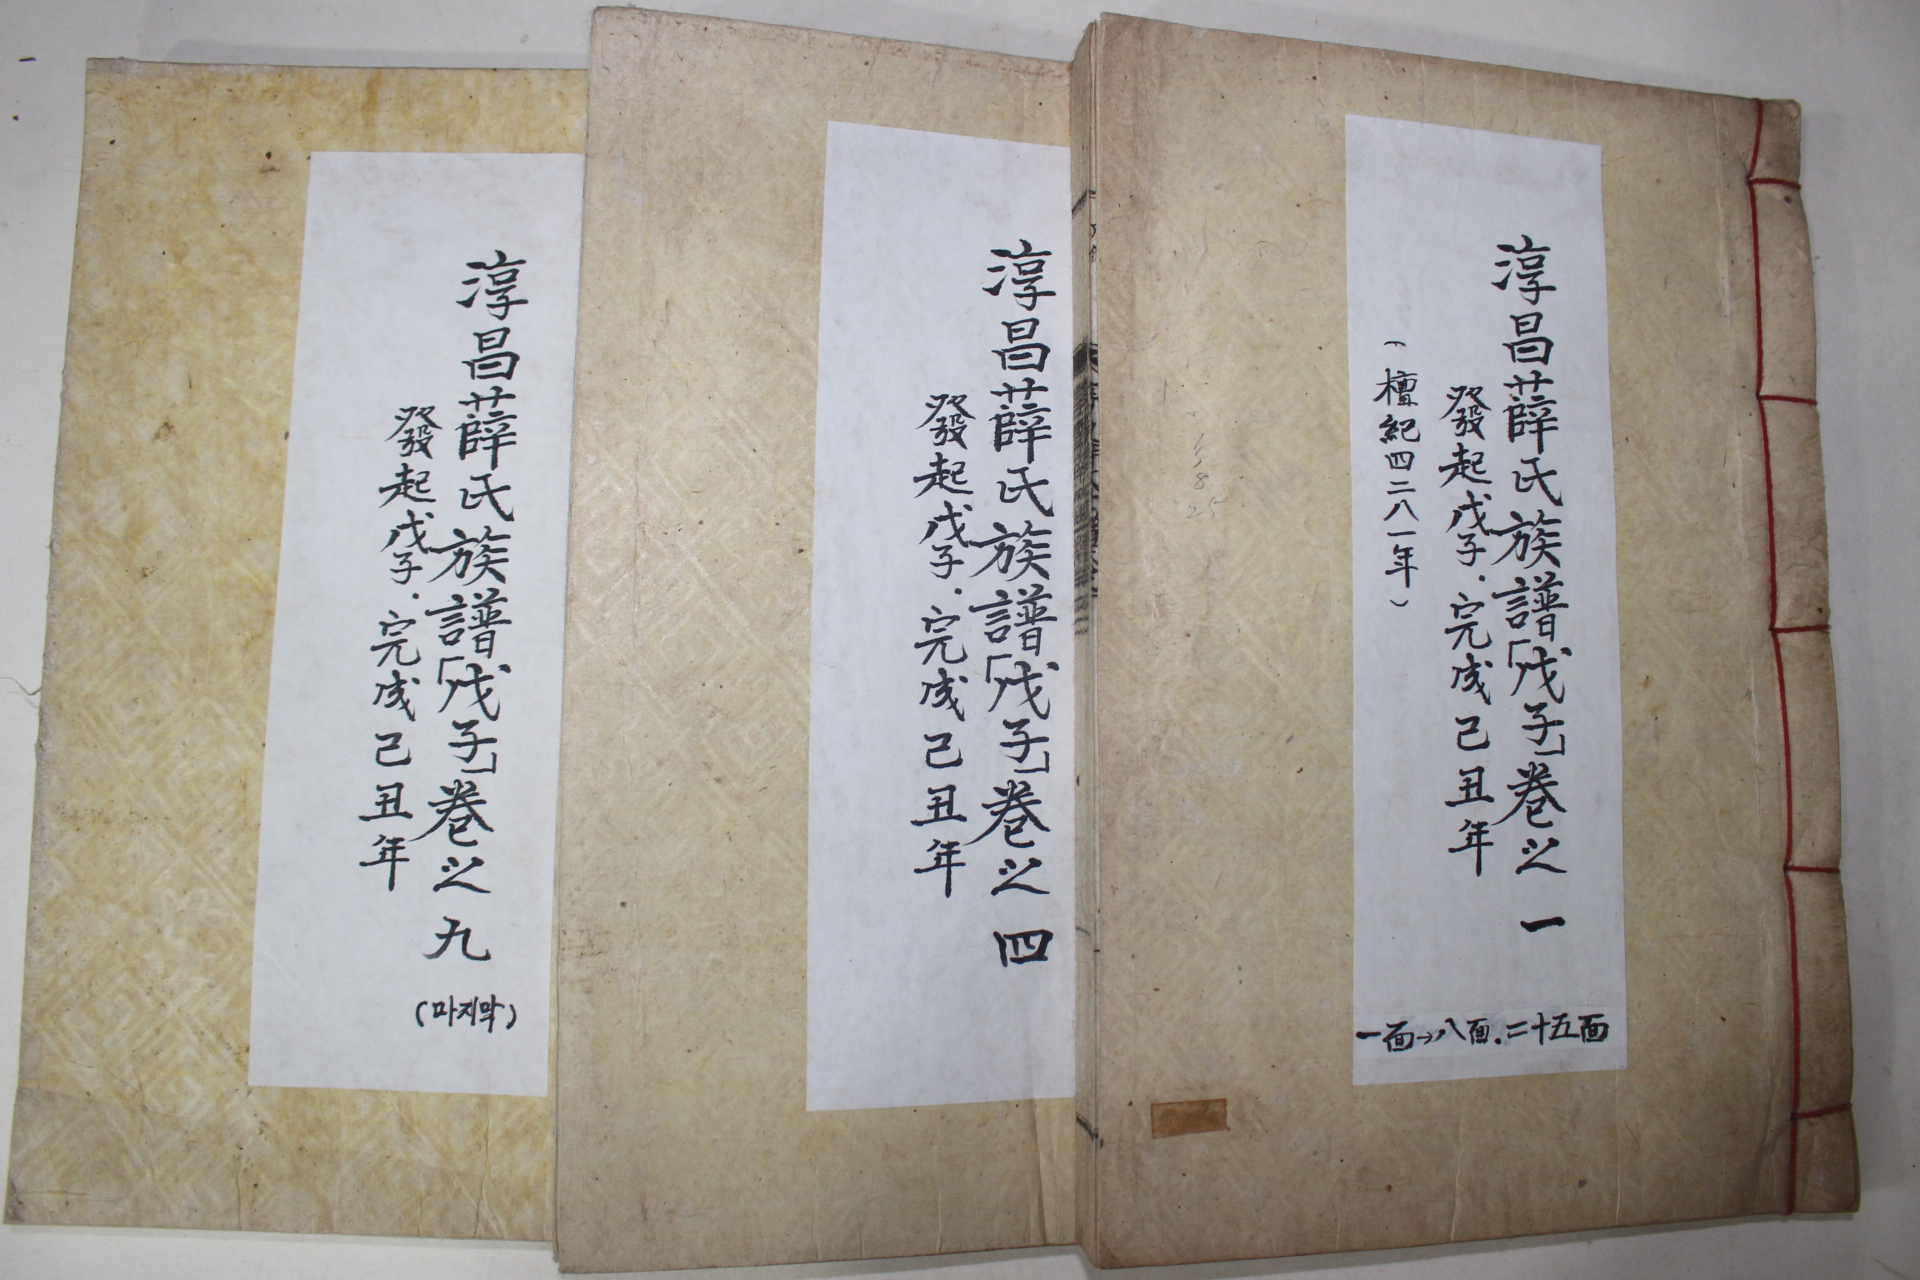 淳昌薛氏族譜「戊子」卷之一
發起戊子.完成己丑年
(檀紀四二八一年)
一面→八面.二十五面
淳昌薛氏族譜「戊子」卷之四
發起戊子.完成己丑年
淳昌薛氏族譜「戊子」卷之九
(마지막)
發起戊子.完成己丑年